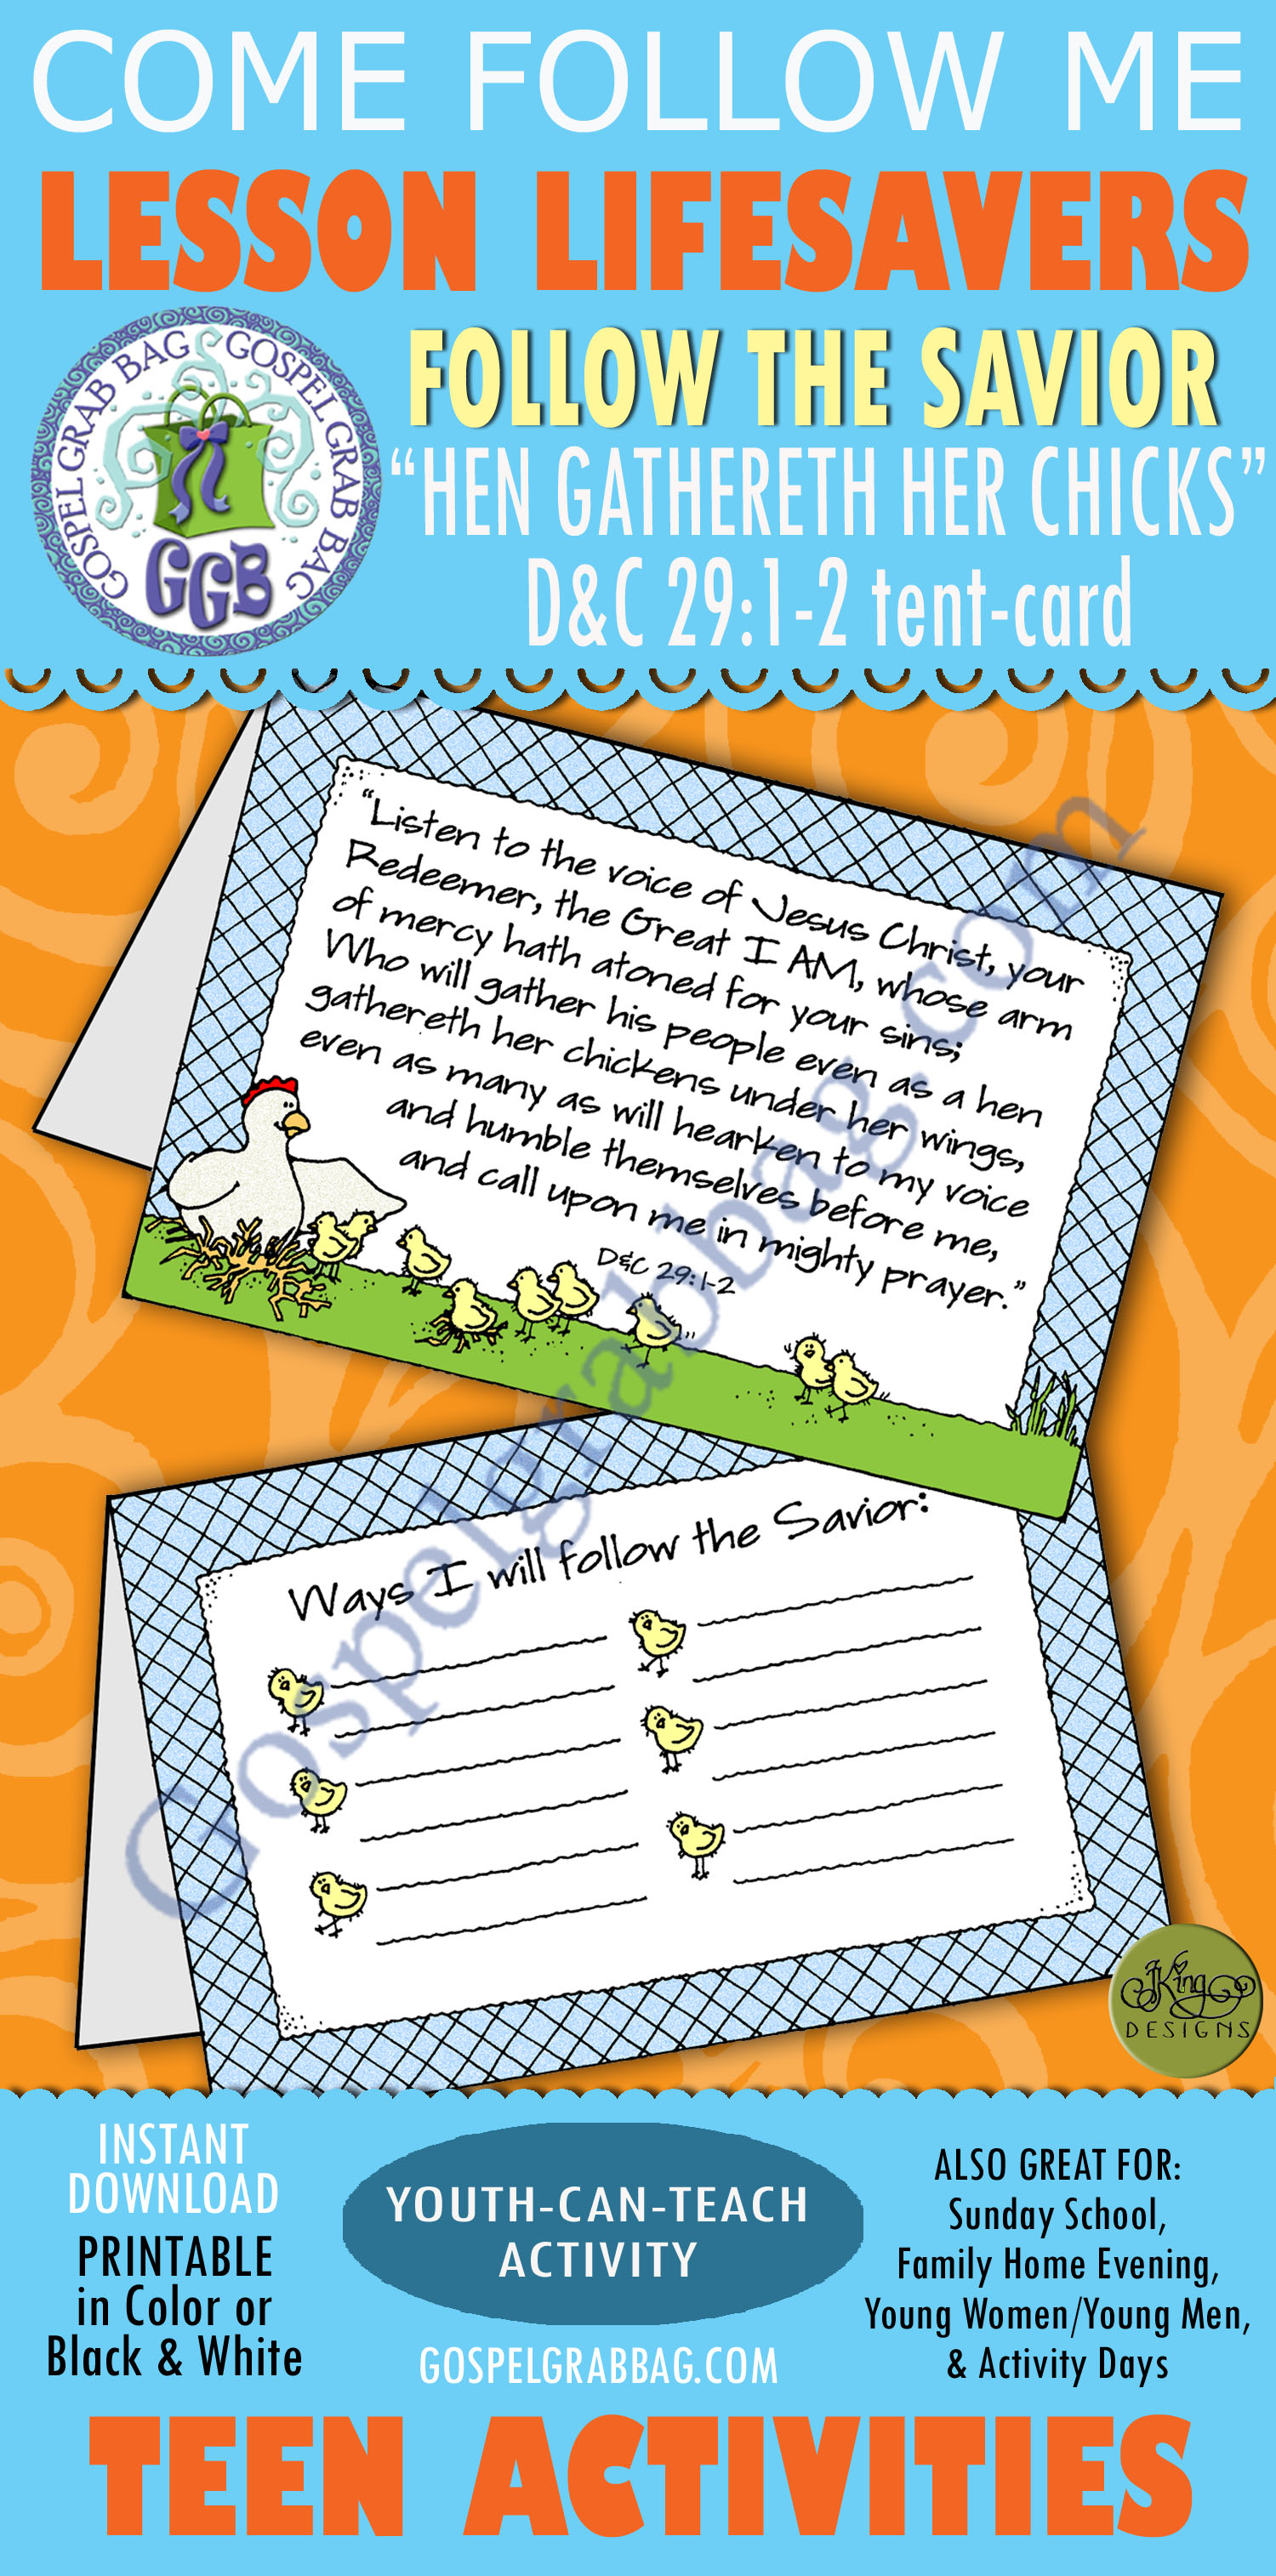 COME FOLLOW ME
LESSON LIFESAVERS
GOSPEL GRAB BAG GOSPEL GRAB BAG
GGB
FOLLOW THE SAVIOR
“HEN GATHERETH HER CHICKS”
D&C 29:1-2 tent-card
“Listen to the voice of Jesus Christ, your
Redeemer, the Great I AM, whose arm
of mercy hath atoned for your sins;
Who will gather his people even as a hen
gathereth her chickens under her wings,
even as many as will hearken to my voice
and humble themselves before me,
and call upon me in mighty prayer.”
D&C 29:1-2
Ways I will follow the Savior:
Gospelgrabbag.com
JKing
DESIGNS
INSTANT
DOWNLOAD
PRINTABLE
in Color or
Black & White
YOUTH-CAN-TEACH
ACTIVITY
GOSPELGRABBAG.COM
ALSO GREAT FOR:
Sunday School,
Family Home Evening,
Young Women/Young Men,
& Activity Days
TEEN ACTIVITIES